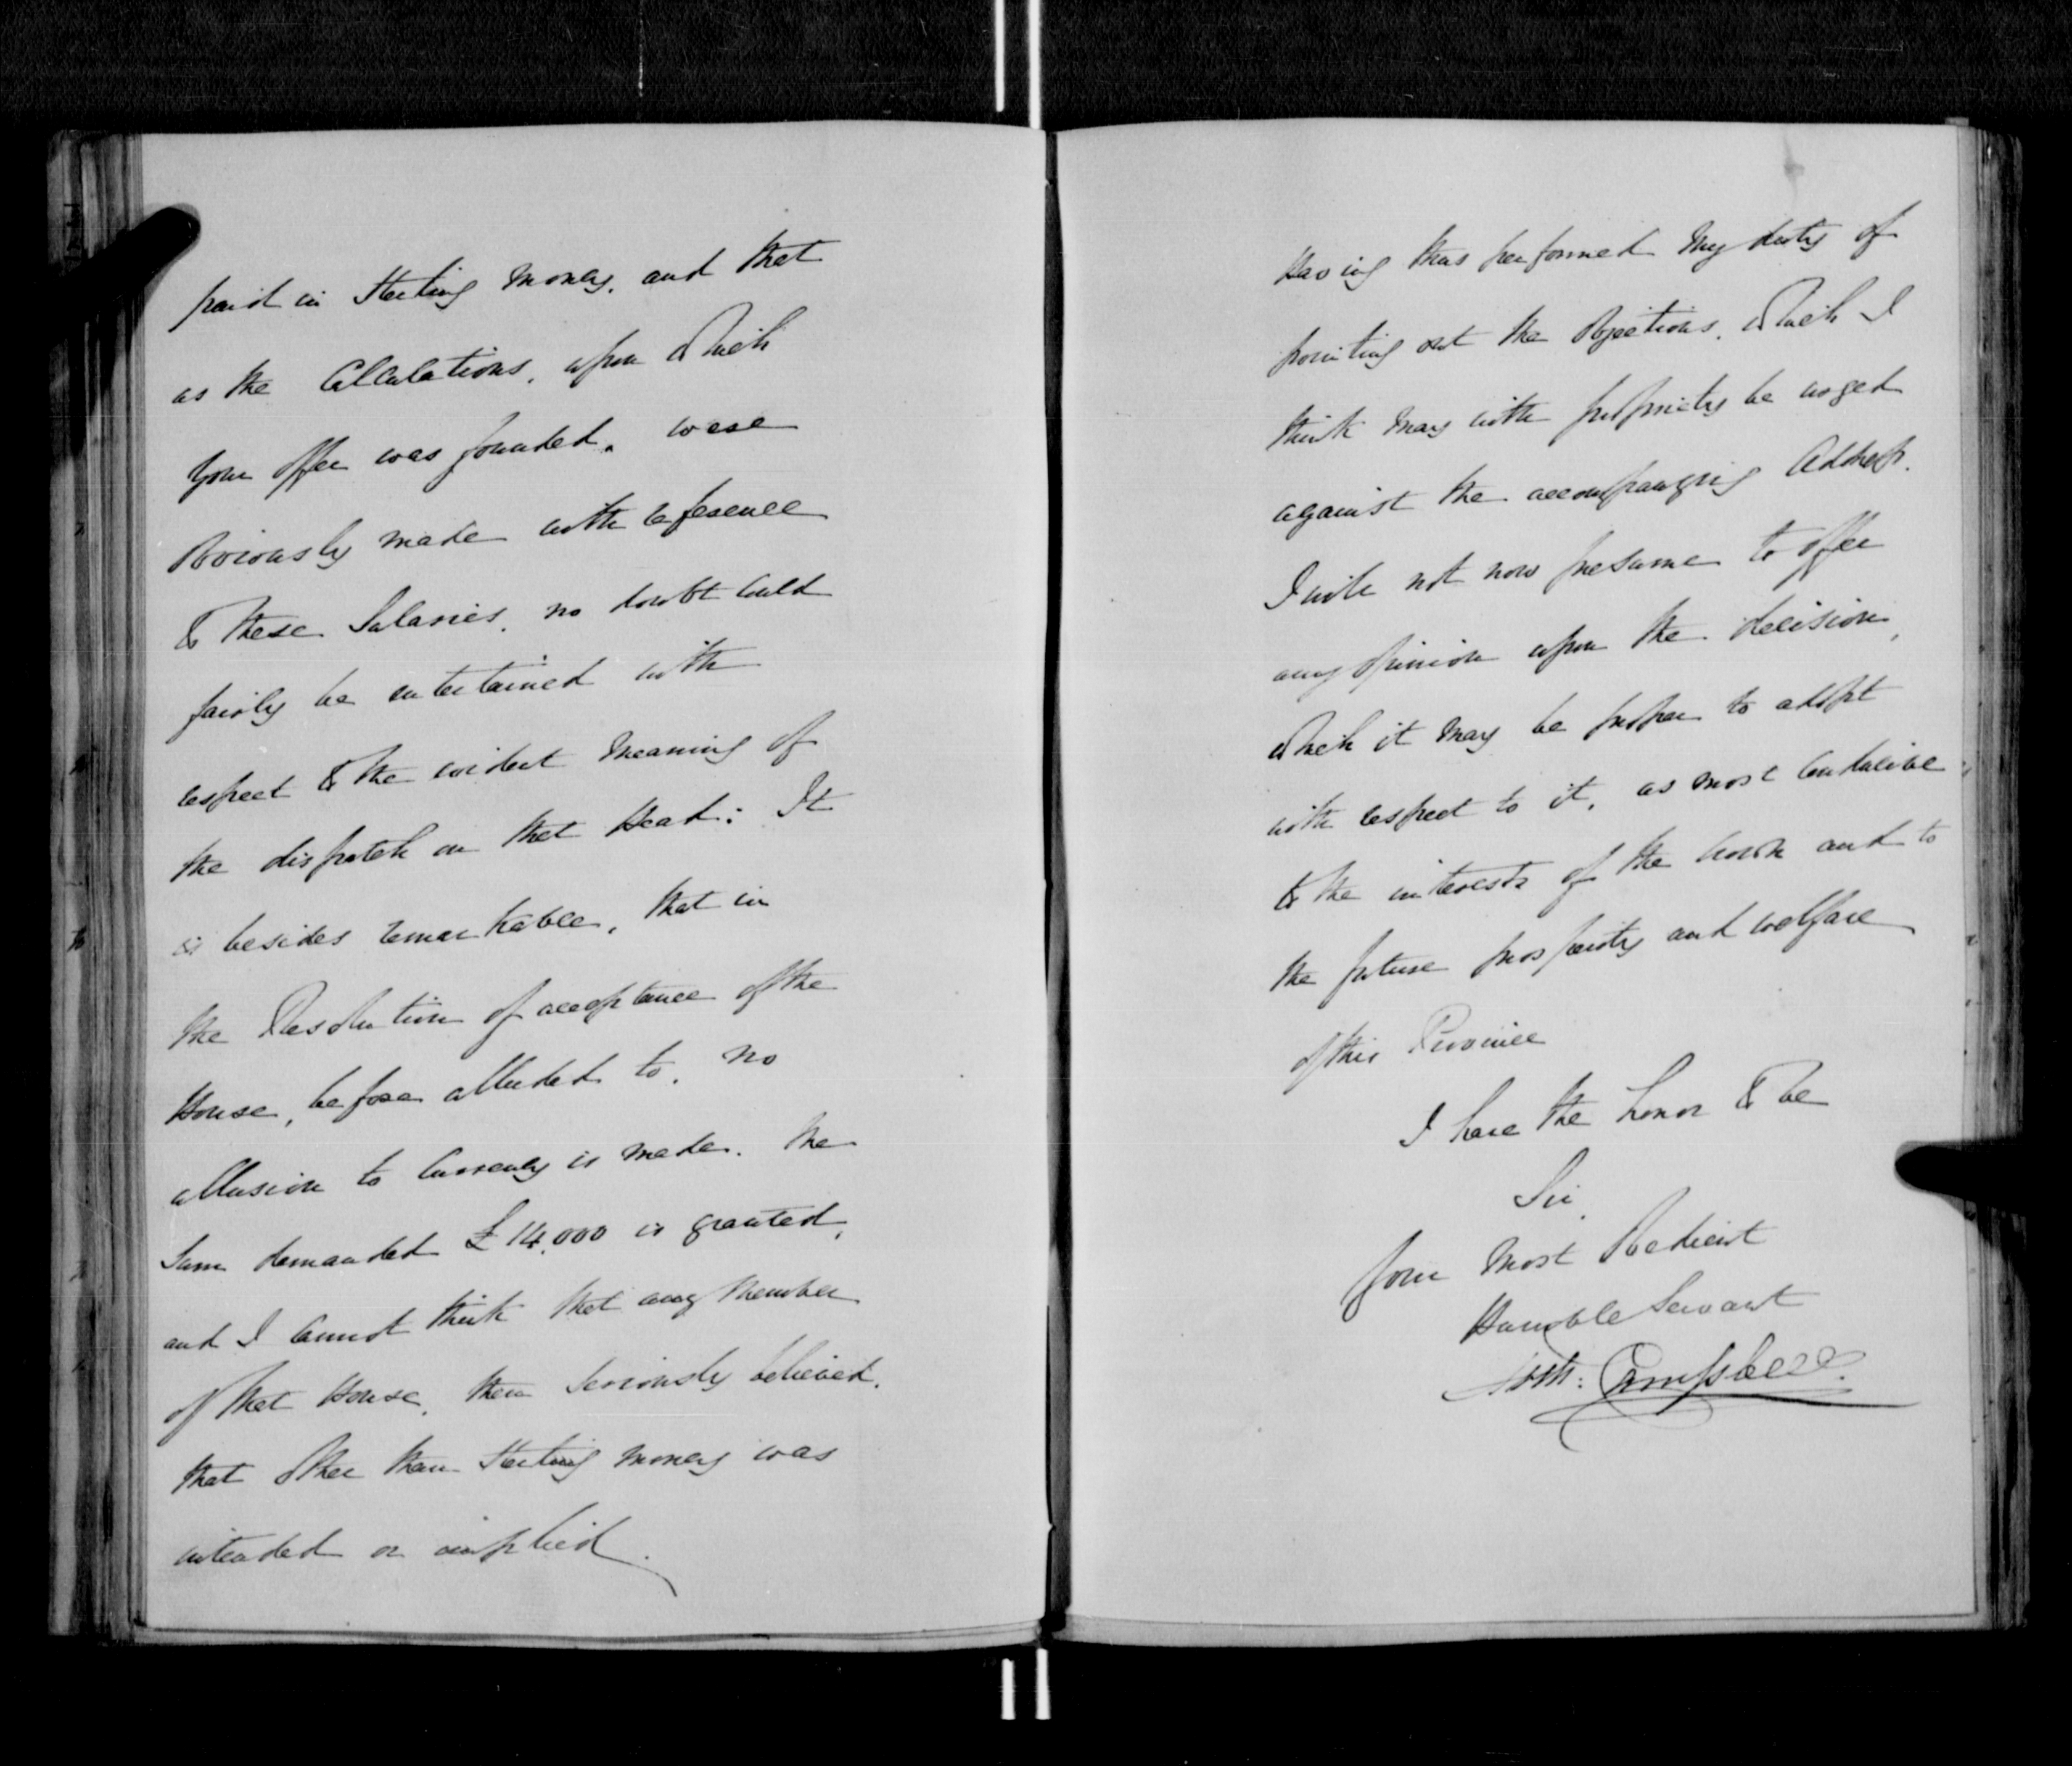 paid in Sterling Money, and that
as the Calculations, upon which
your offer was founded, were
Obviously made with reference
to these Salaries, no doubt could
fairly be entertained with
respect to the evident Meaning of
the dispatch on that Head: It
is besides remarkable, that in
the Resolution of acceptance of the
House, before alluded to, no
allusion to Currency is made. The
Sum demanded £14,000 is granted,
and I cannot think that any Member
of that House, then Seriously believed,
that other than Sterling Money was
intended or implied.
Having thus performed My duty of
pointing out the Objections, which I
think may with propriety be urged
against the accompanying Address.
I will not now presume to offer
any opinion upon the decision,
which it may be proper to adopt
with respect to it, as most Conducive
to the interests of the Crown and to
the future prosperity and welfare
of this Province
I have the honor to be
Sir,
Your Most Obedient
Humble Servant
Archd: Campbell.